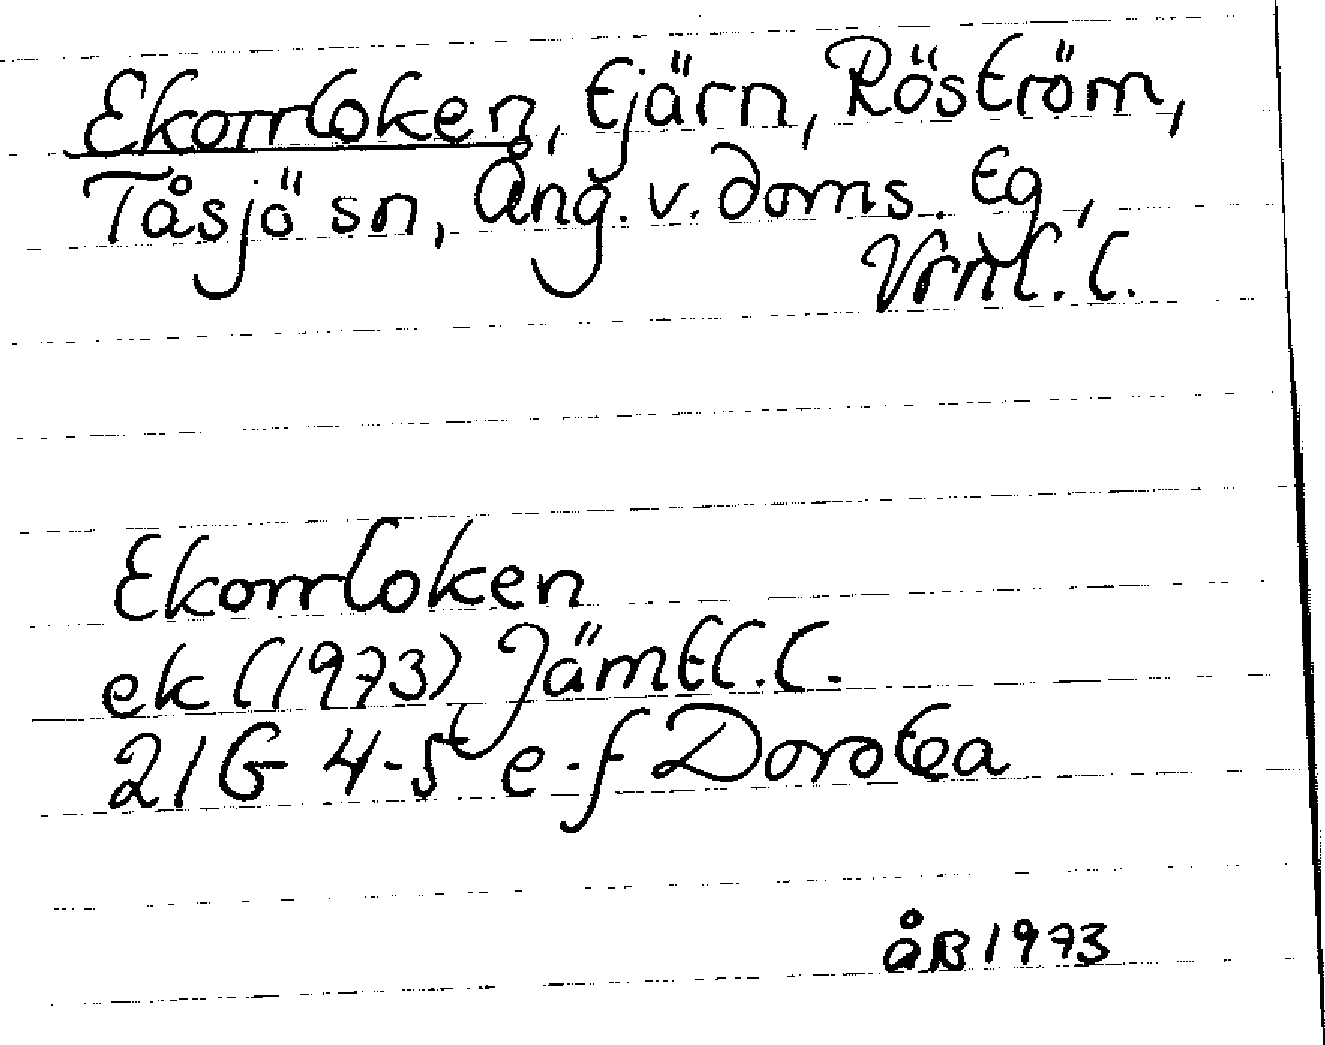 Ekorrloken, tjärn, Röström,
Tåsjö sn, Ång. v. doms. tg,
Vrnl. l.
Ekorrloken
ek (1973) Jämtl. l.
21G 4-5 e-f Dorotea
åB 1973